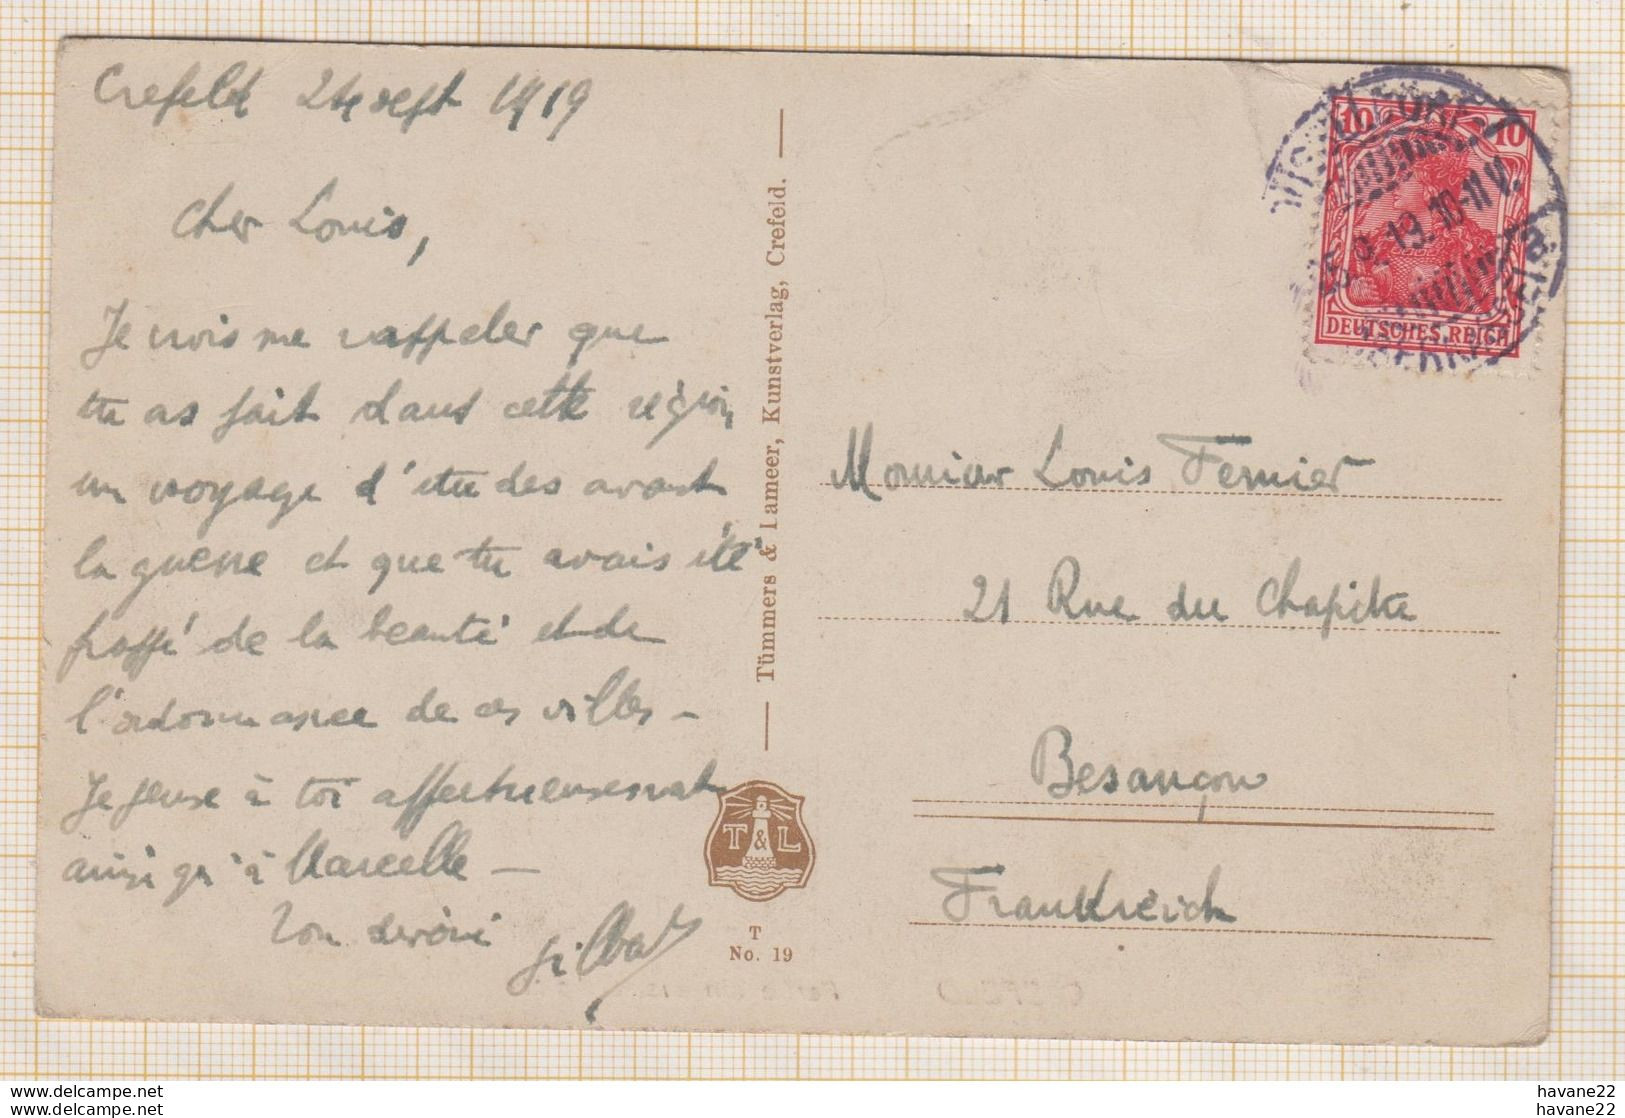 Crefeld 24 sept 1919
Cher Louis,
Je crois me rappeler que
tu as fait dans cette région
un voyage d'études avant
la guerre et que tu avais été
frappé de la beauté et de
l'ordonnance de ces villes –
Je pense à toi affectueusement
ainsi qu'à Marcelle –
Ton dévoué
Gilbert
Tümmers & Lameer, Kunstverlag, Crefeld.
T & L
T
No. 19
10 10
DEUTSCHES REICH
9.19.10-11V.
Monsieur Louis Fernier
21 Rue du Chapitre
Besançon
Frankreich
havane22.net
havane22.net
havane22
havane22